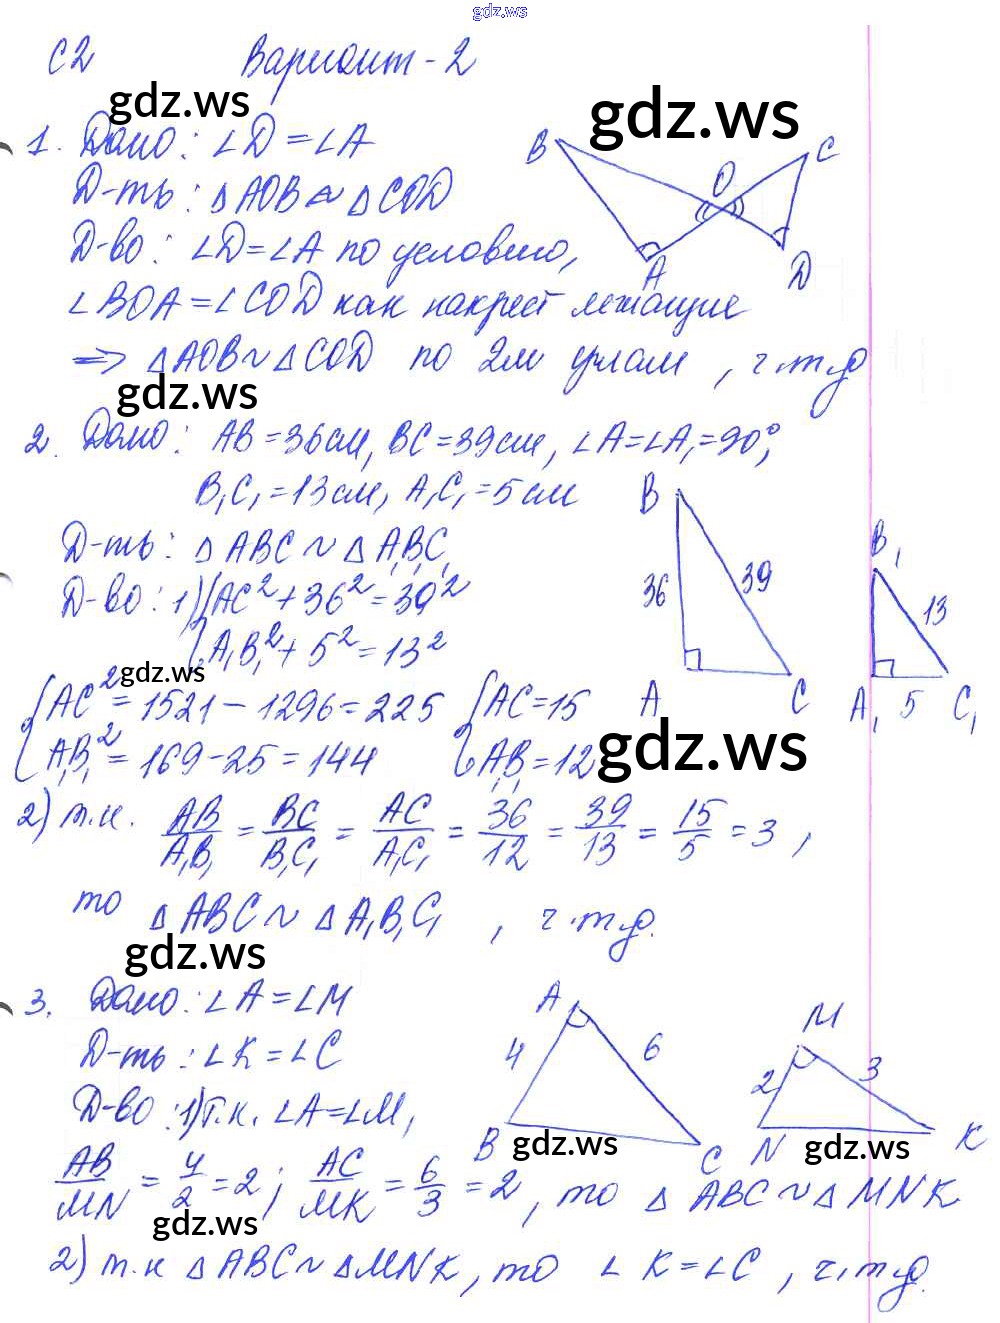 gdz.ws
С2 Вариант - 2
gdz.ws
gdz.ws
1. Дано: ∠D = ∠A
Д-ть: △AOB ~ △COD
Д-во: ∠D = ∠A по условию,
∠BOA = ∠COD как накрест лежащие
=> △AOB ~ △COD по 2м углам, ч.т.д
B O C A D
gdz.ws
2. Дано: AB = 36см, BC = 39см, ∠A = ∠A₁ = 90°,
B₁C₁ = 13см, A₁C₁ = 5см
Д-ть: △ABC ~ △A₁B₁C₁
Д-во: 1) { AC² + 36² = 39²
A₁B₁² + 5² = 13²
gdz.ws
{ AC² = 1521 - 1296 = 225 { AC = 15
A₁B₁² = 169 - 25 = 144 A₁B₁ = 12
B 36 39 A C
B₁ 13 A₁ 5 C₁
gdz.ws
2) т.к. AB/A₁B₁ = BC/B₁C₁ = AC/A₁C₁ = 36/12 = 39/13 = 15/5 = 3,
то △ABC ~ △A₁B₁C₁, ч.т.д.
gdz.ws
3. Дано: ∠A = ∠M
Д-ть: ∠K = ∠C
Д-во: 1) Т.к. ∠A = ∠M,
A 4 6 B C
M 2 3 N K
gdz.ws
gdz.ws
AB/MN = 4/2 = 2; AC/MK = 6/3 = 2, то △ABC ~ △MNK
gdz.ws
2) т.к △ABC ~ △MNK, то ∠K = ∠C, ч.т.д.